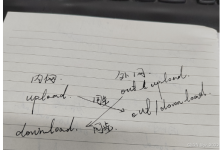 内网 外网
upload out/upload
同步 out/download
download 同步